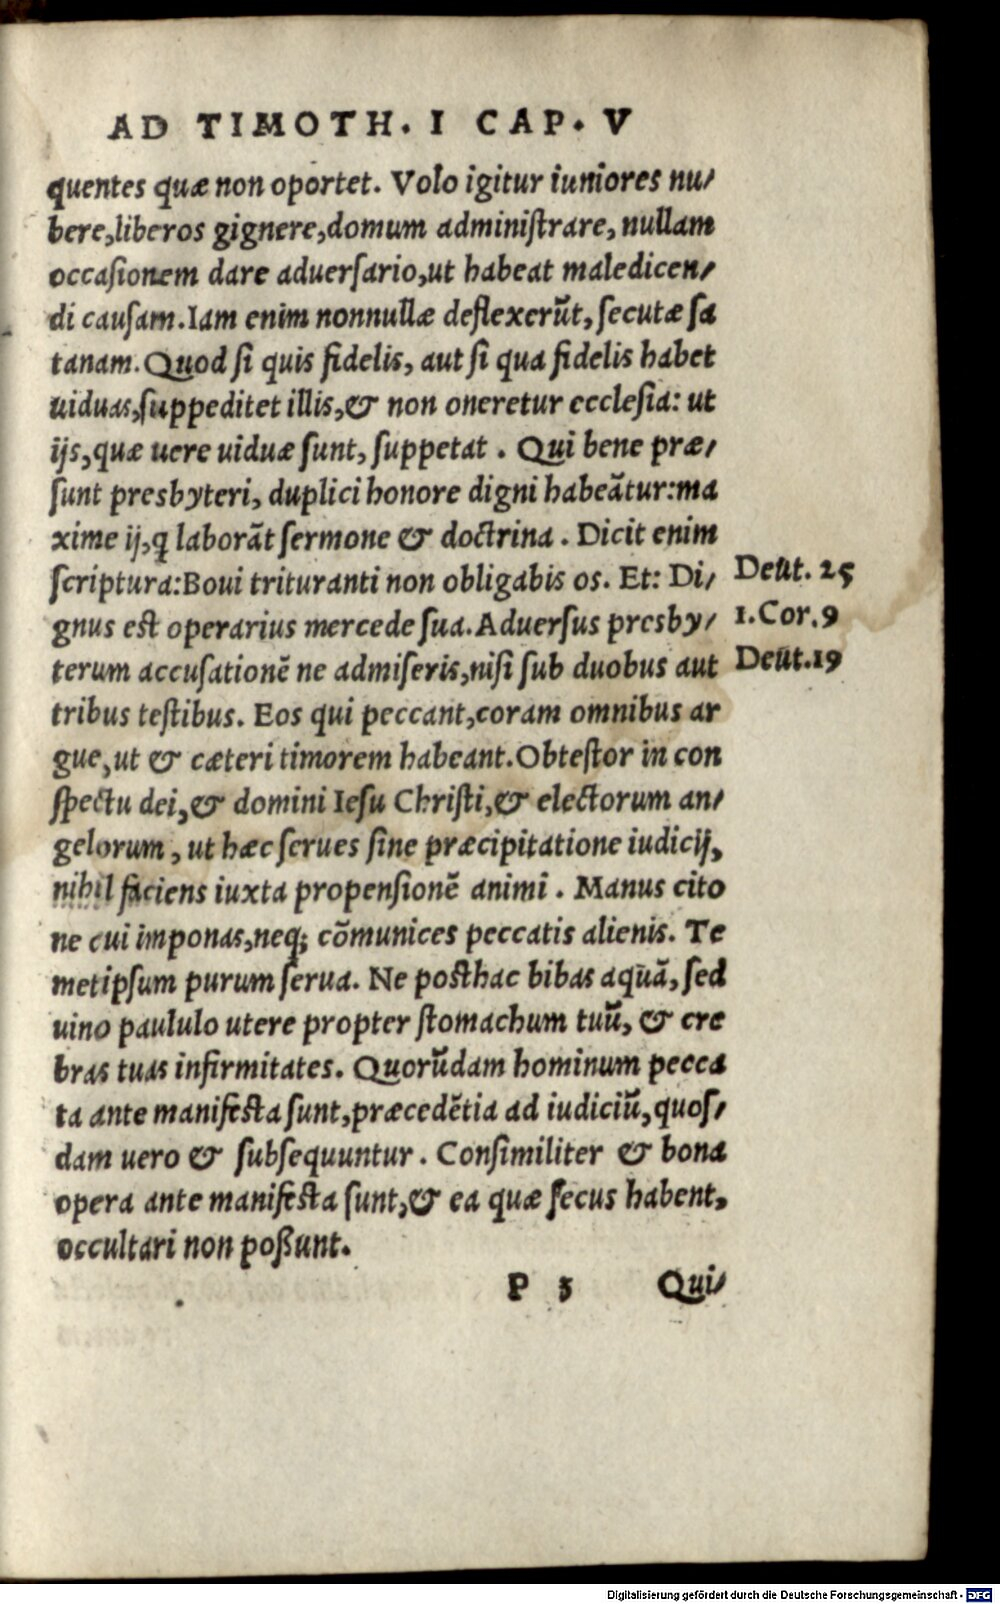 AD TIMOTH. I CAP. V
quentes quæ non oportet. Volo igitur iuniores nu/
bere,liberos gignere,domum adminiſtrare, nullam
occaſionem dare aduerſario,ut habeat maledicen/
di cauſam.Iam enim nonnullæ deflexerūt, ſecutæ ſa
tanam. Quod ſi quis fidelis, aut ſi qua fidelis habet
uiduas,ſuppeditet illis,& non oneretur eccleſia: ut
ijs,quæ uere uiduæ ſunt, ſuppetat . Qui bene præ/
ſunt presbyteri, duplici honore digni habeātur:ma
xime ij,q laborāt ſermone & doctrina . Dicit enim
ſcriptura:Boui trituranti non obligabis os. Et: Di/ Deut. 25
gnus est operarius mercede ſua.Aduerſus presby/ 1.Cor.9
terum accuſationē ne admiſeris,niſi ſub duobus aut Deut.19
tribus teſtibus. Eos qui peccant,coram omnibus ar
gue,ut & cæteri timorem habeant.Obteſtor in con
ſpectu dei,& domini Ieſu Chriſti,& electorum an/
gelorum , ut hæc ſerues ſine præcipitatione iudicij,
nihil faciens iuxta propenſionē animi . Manus cito
ne cui imponas,neq; cōmunices peccatis alienis. Te
metipſum purum ſerua. Ne posthac bibas aquā, ſed
uino paululo utere propter ſtomachum tuū, & cre
bras tuas infirmitates. Quorūdam hominum pecca
ta ante manifesta ſunt,præcedētia ad iudiciū,quoſ/
dam uero & ſubſequuntur . Conſimiliter & bona
opera ante manifesta ſunt,& ea quæ ſecus habent,
occultari non poßunt.
P 3 Qui/
Digitalisierung gefördert durch die Deutsche Forschungsgemeinschaft - DFG